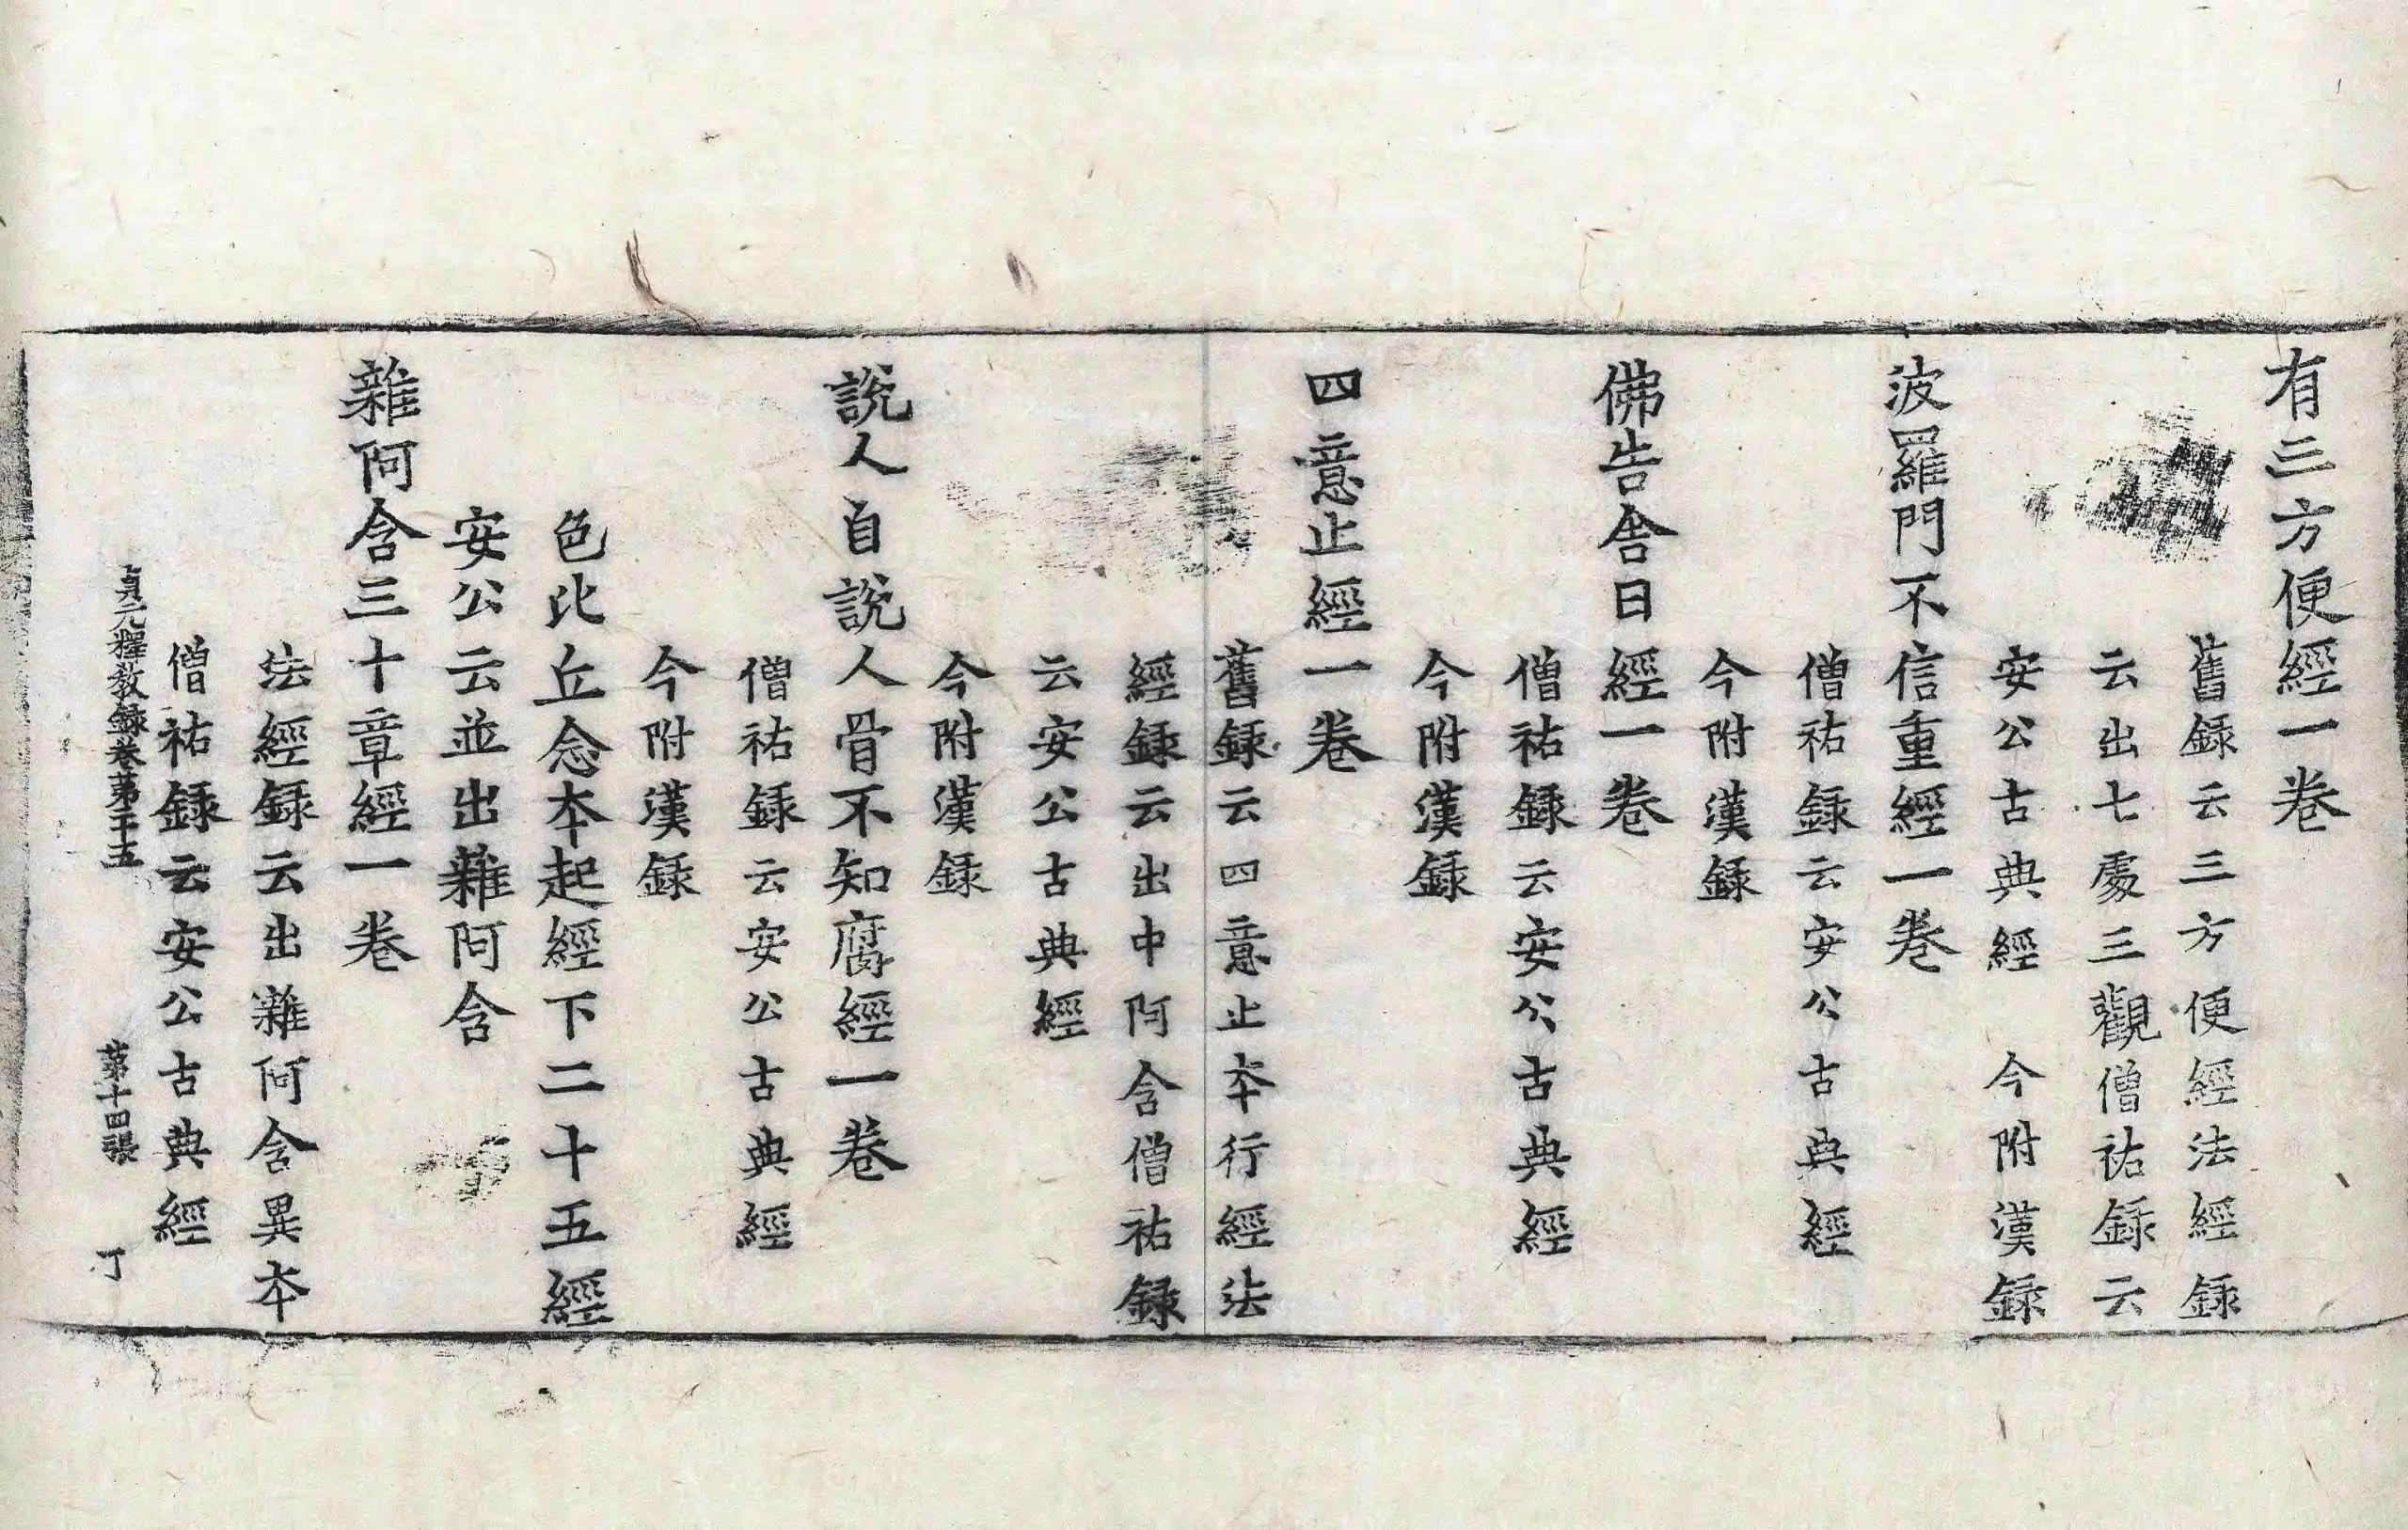 有三方便經一卷
舊録云三方便經法經録
云出七處三觀僧祐録云
安公古典經　今附漢録
波羅門不信重經一卷
僧祐録云安公古典經
今附漢録
佛告舎日經一卷
僧祐録云安公古典經
今附漢録
四意止經一卷
舊録云四意止夲行經法
經録云出中阿含僧祐録
云安公古典經
今附漢録
說人自說人骨不知腐經一卷
僧祐録云安公古典經
今附漢録
色比丘念本起經下二十五經
安公云並出雜阿含
雜阿含三十章經一卷
法經録云出雜阿含異夲
僧祐録云安公古典經
貞元釋教録卷第二十五　第十四張　丁